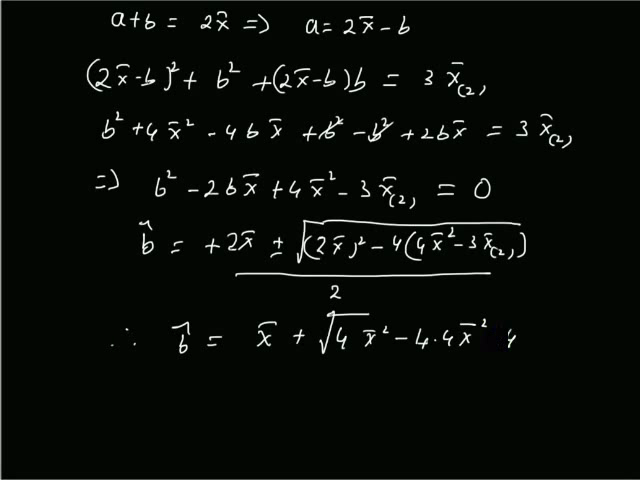 a+b = 2x̄ => a = 2x̄-b
(2x̄-b)² + b² + (2x̄-b)b = 3 x̄₍₂₎
b² + 4x̄² - 4bx̄ + b² - b² + 2bx̄ = 3 x̄₍₂₎
=> b² - 2bx̄ + 4x̄² - 3x̄₍₂₎ = 0
b̂ = +2x̄ ± √((2x̄)² - 4(4x̄² - 3x̄₍₂₎)) / 2
∴ b̂ = x̄ + √(4 x̄² - 4·4x̄²